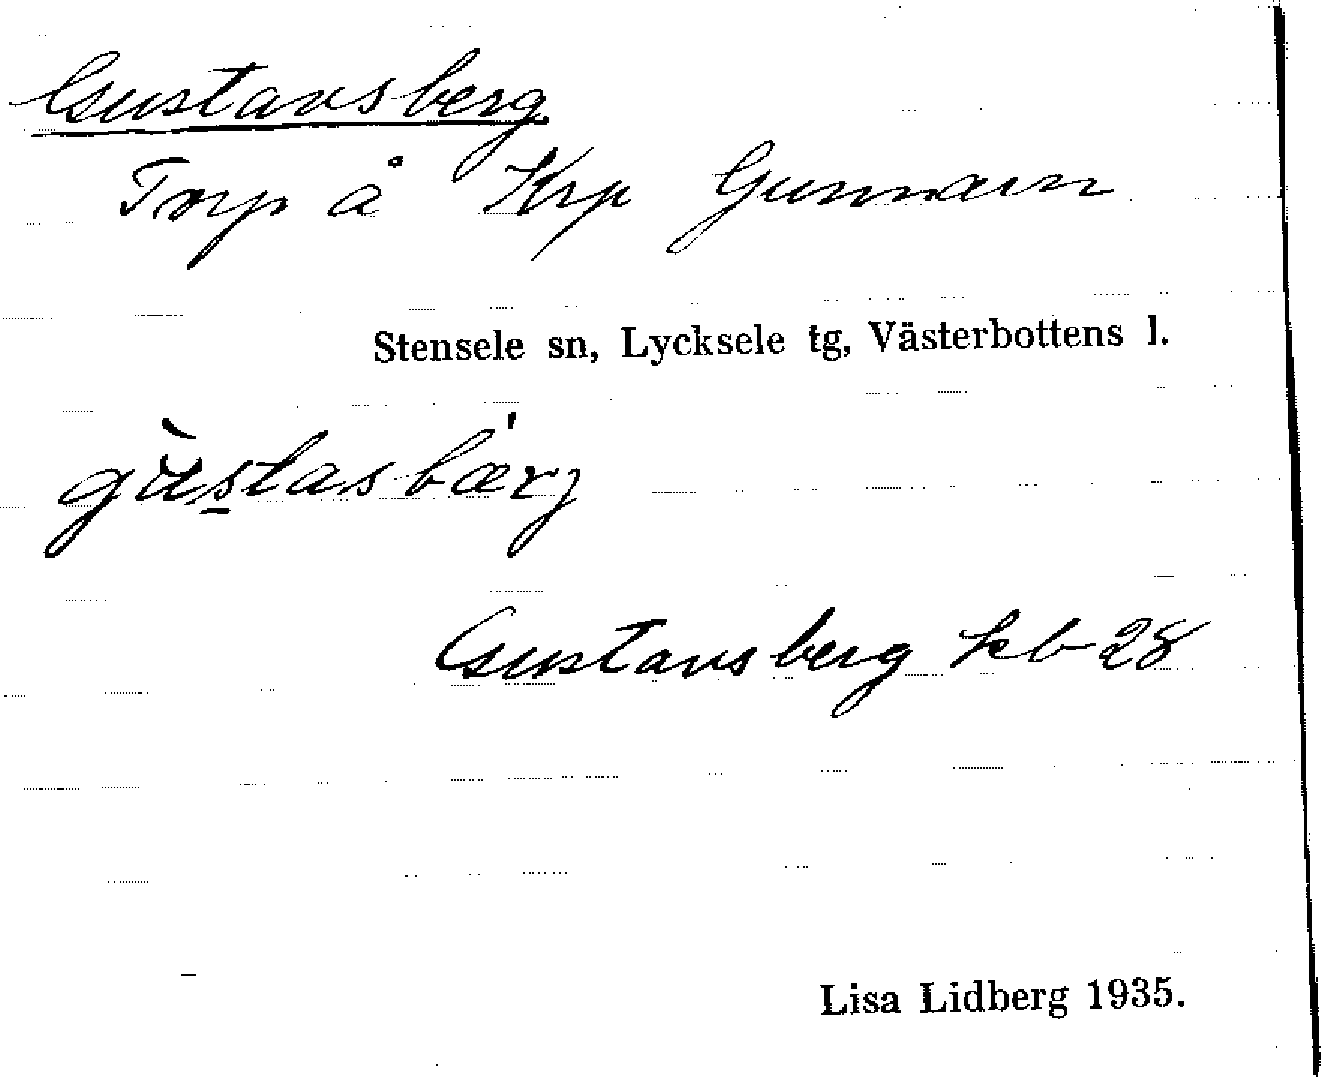 Gustavsberg
Torp å Krp Gunnarn
Stensele sn, Lycksele tg, Västerbottens l.
gùstasbærj
Gustavsberg kb 28
Lisa Lidberg 1935.